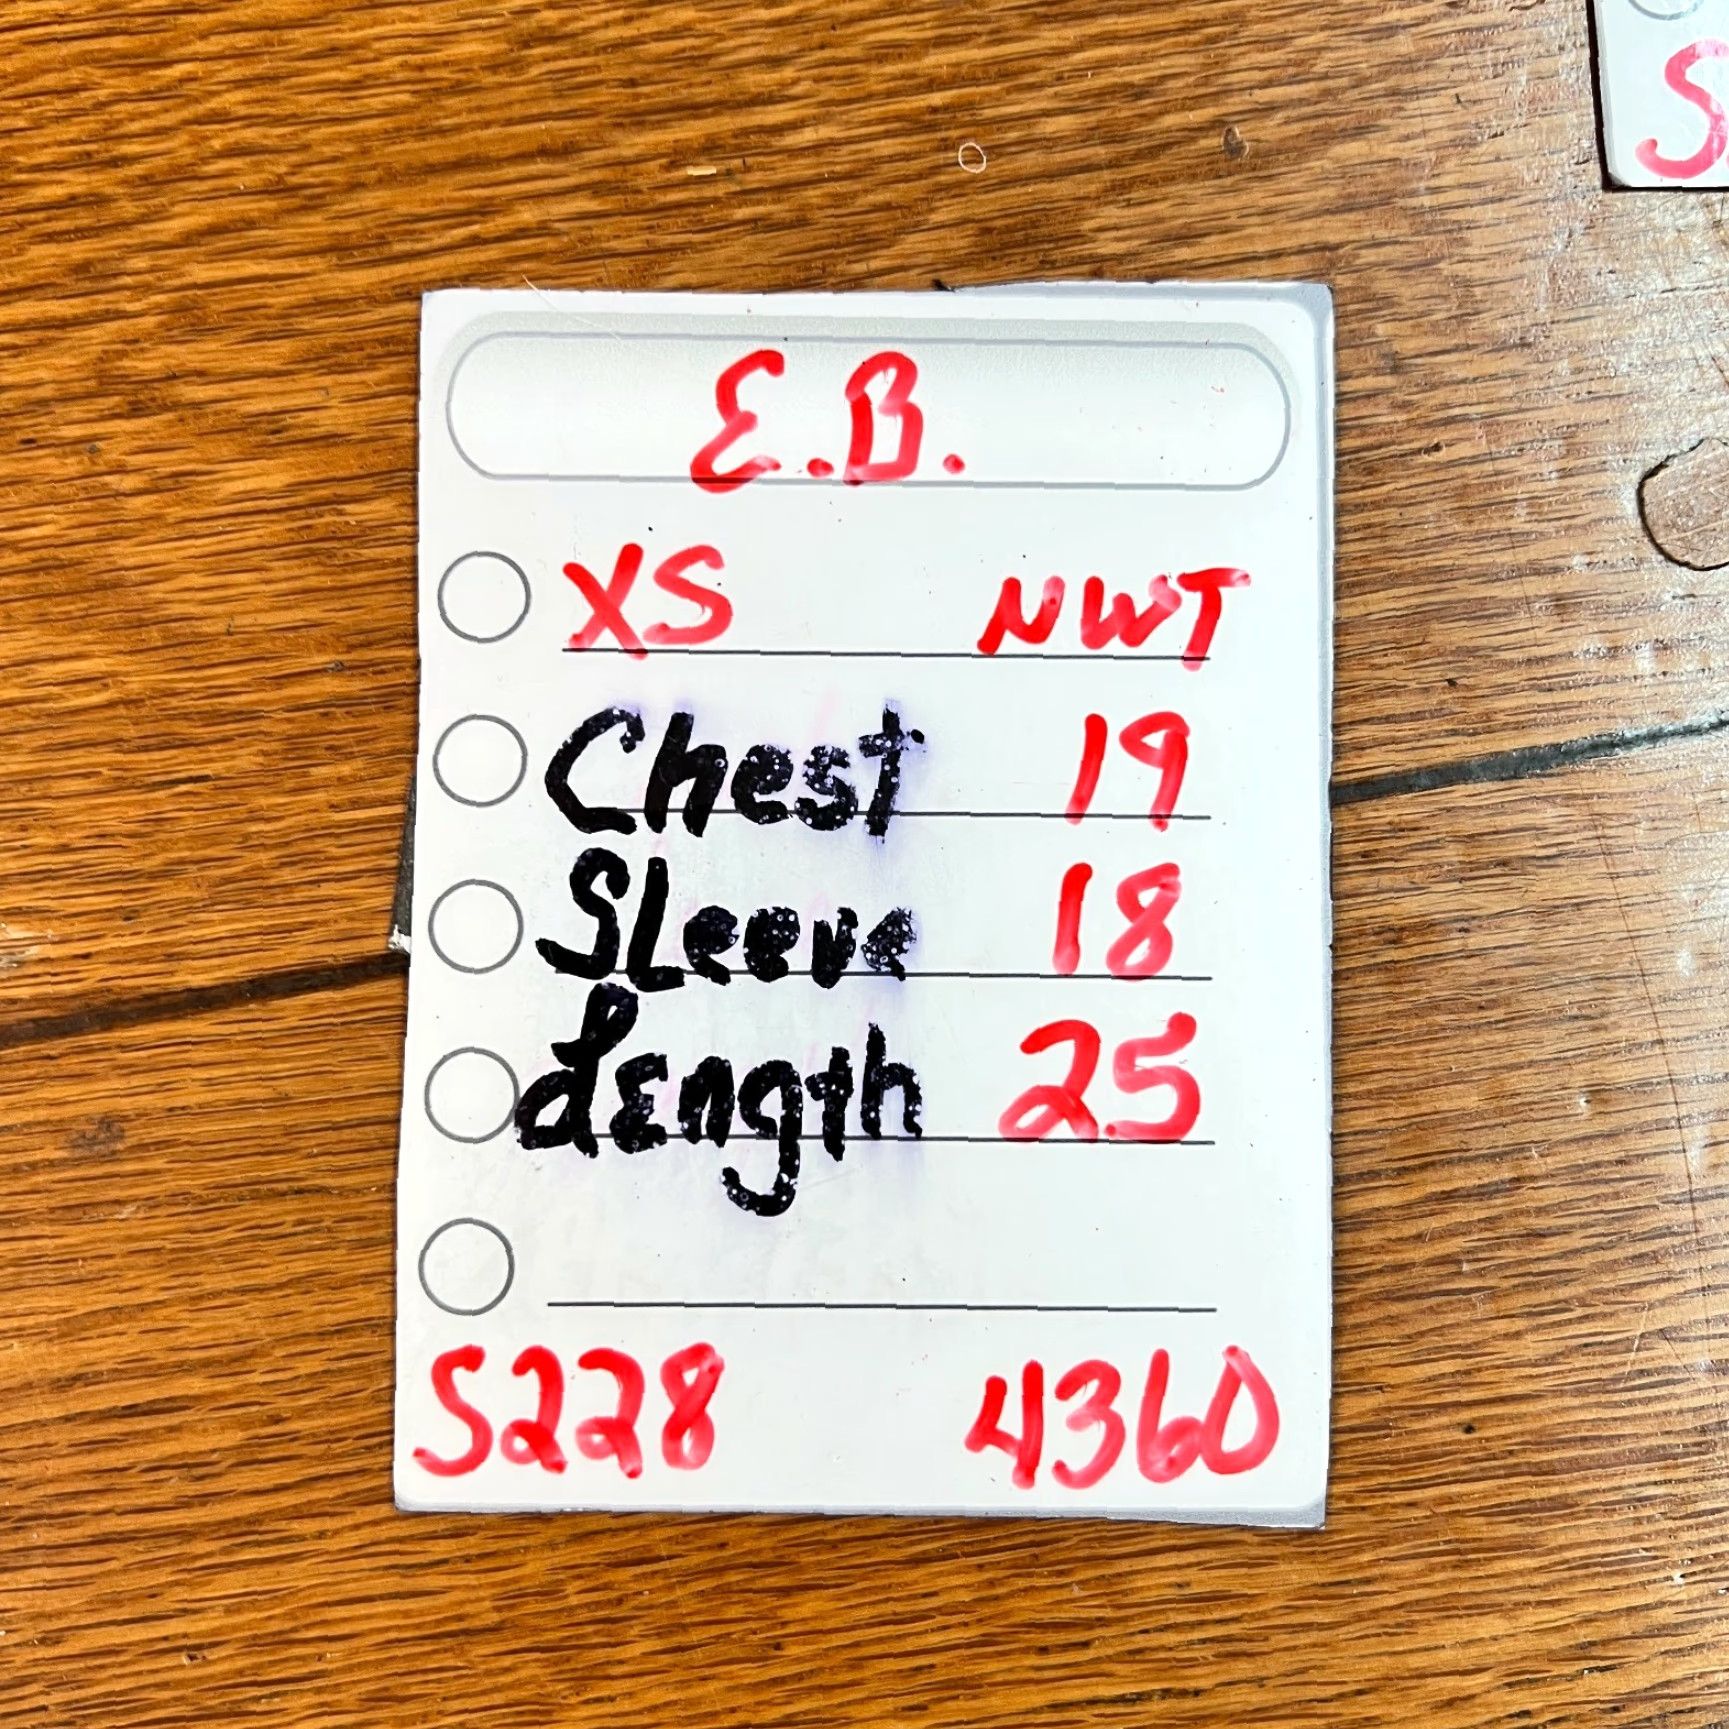 S
E.B.
XS NWT
Chest 19
SLeeve 18
Length 25
S228 4360